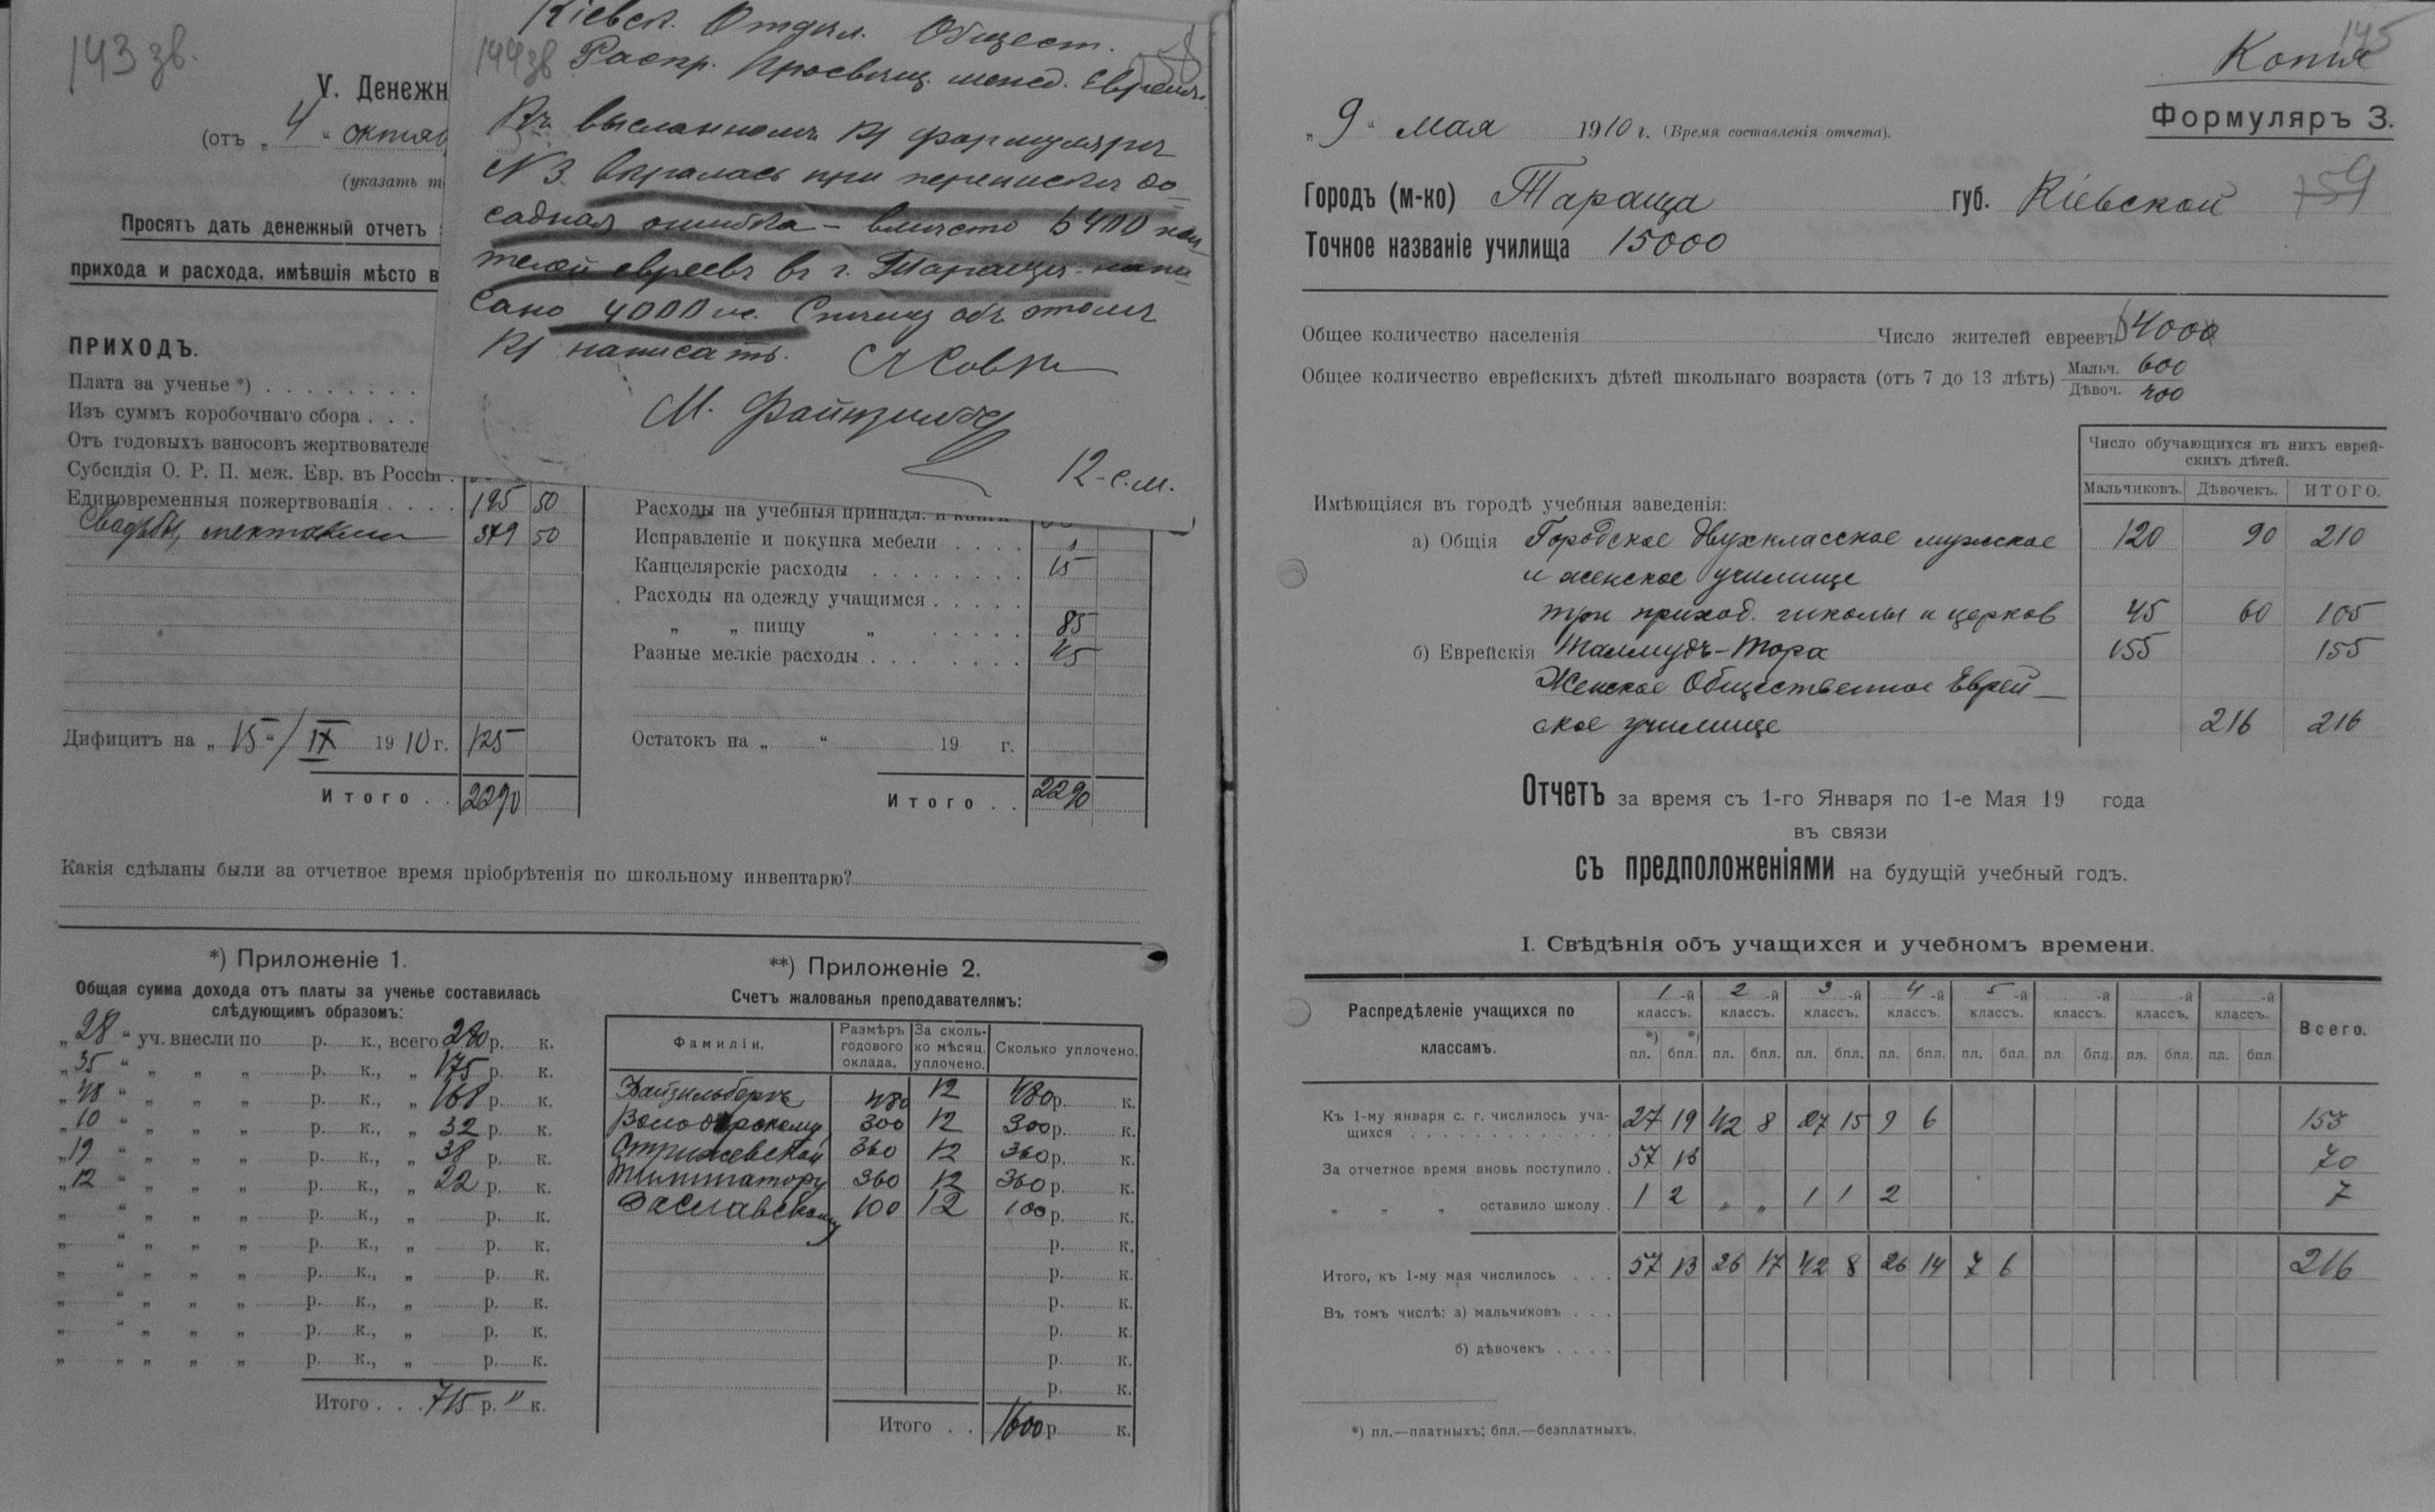 143 зв.
V. Денежн
(отъ „ 4 “ октяб
(указать т
Просятъ дать денежный отчетъ
прихода и расхода, имѣвшія мѣсто в
ПРИХОДЪ.
Плата за ученье *) . . . . . . . .
Изъ суммъ коробочнаго сбора . . .
Отъ годовыхъ взносовъ жертвователе
Субсидія О. Р. П. меж. Евр. въ Россіи .
Единовременныя пожертвованія . . . . 195 50
Свадьбы, спектакли 379 50
Дифицитъ на „ 15 “/IX 1910 г. 125
Итого . . 2290
Кіевск. Отдѣл. Общест.
144 зв Распр. Просвѣщ. межд. Евреями.
Въ высланномъ Вы формулярѣ
N 3 вкралась при перепискѣ до=
садная ошибка – вмѣсто 5400 жи
телей евреевъ въ г. Таращѣ напи=
сано 4000 ж. Спѣшу объ этомъ
Вы написать.
М. Файнзильбер
12-с.м.
Расходы на учебныя принадл. и книги
Исправленіе и покупка мебели . . . .
Канцелярскіе расходы . . . . . . . . 15
Расходы на одежду учащимся . . . . .
„ „ пищу „ . . . . . 85
Разные мелкіе расходы . . . . . . . 45
Остатокъ на „ “ 19 г.
Итого . . 2290
Какія сдѣланы были за отчетное время пріобрѣтенія по школьному инвентарю?
*) Приложеніе 1.
Общая сумма дохода отъ платы за ученье составилась
слѣдующимъ образомъ:
„ 28 “ уч. внесли по р. к., всего 280 р. к.
„ 35 “ „ „ „ р. к., „ 175 р. к.
„ 48 “ „ „ „ р. к., „ 168 р. к.
„ 10 “ „ „ „ р. к., „ 32 р. к.
„ 19 “ „ „ „ р. к., „ 38 р. к.
„ 12 “ „ „ „ р. к., „ 22 р. к.
„ “ „ „ „ р. к., „ р. к.
„ “ „ „ „ р. к., „ р. к.
„ “ „ „ „ р. к., „ р. к.
„ “ „ „ „ р. к., „ р. к.
„ “ „ „ „ р. к., „ р. к.
„ „ „ „ „ р. к., „ р. к.
Итого . . . 715 р. " к.
**) Приложеніе 2.
Счетъ жалованья преподавателямъ:
Фамиліи. Размѣръ годового оклада. За сколько мѣсяц. уплочено. Сколько уплочено.
Файнзильбергъ 480 12 480 р. к.
Володарскому 300 12 300 р. к.
Стрижевской 360 12 360 р. к.
360 12 360 р. к.
Заславскому 100 12 100 р. к.
р. к.
р. к.
р. к.
р. к.
р. к.
р. к.
Итого . . 1600 р. к.
145
Копія
Формуляръ 3.
„ 9 “ мая 1910 г. (Время составленія отчета).
159
Городъ (м-ко) Тараща губ. Кіевской
Точное названіе училища 15000
Общее количество населенія Число жителей евреевъ 54000
Общее количество еврейскихъ дѣтей школьнаго возраста (отъ 7 до 13 лѣтъ) Мальч. 600
Дѣвоч. 700
Число обучающихся въ нихъ еврей-
скихъ дѣтей.
Мальчиковъ. Дѣвочекъ. ИТОГО.
Имѣющіяся въ городѣ учебныя заведенія:
а) Общія Городское Двухклассное мужское 120 90 210
и женское училище
три приход. школы и церков 45 60 105
б) Еврейскія Талмудъ-Тора 155 155
Женское Общественное Еврей–
ское училище 216 216
Отчетъ за время съ 1-го Января по 1-е Мая 19 года
въ связи
съ предположеніями на будущій учебный годъ.
I. Свѣдѣнія объ учащихся и учебномъ времени.
Распредѣленіе учащихся по классамъ. 1-й классъ. 2-й классъ. 3-й классъ. 4-й классъ. 5-й классъ. -й классъ. -й классъ. -й классъ. Всего.
*) *)
пл. бпл. пл. бпл. пл. бпл. пл. бпл. пл. бпл. пл бпл. пл. бпл. пл. бпл
Къ 1-му января с. г. числилось уча-
щихся . . . . . . . . . . . . . 27 19 42 8 27 15 9 6 153
За отчетное время вновь поступило . 57 13 70
„ „ „ оставило школу . 1 2 „ „ 1 1 2 7
Итого, къ 1-му мая числилось . . . 57 13 26 17 42 8 26 14 7 6 216
Въ томъ числѣ: а) мальчиковъ . . .
б) дѣвочекъ . . . .
*) пл.—платныхъ; бпл.—безплатныхъ.